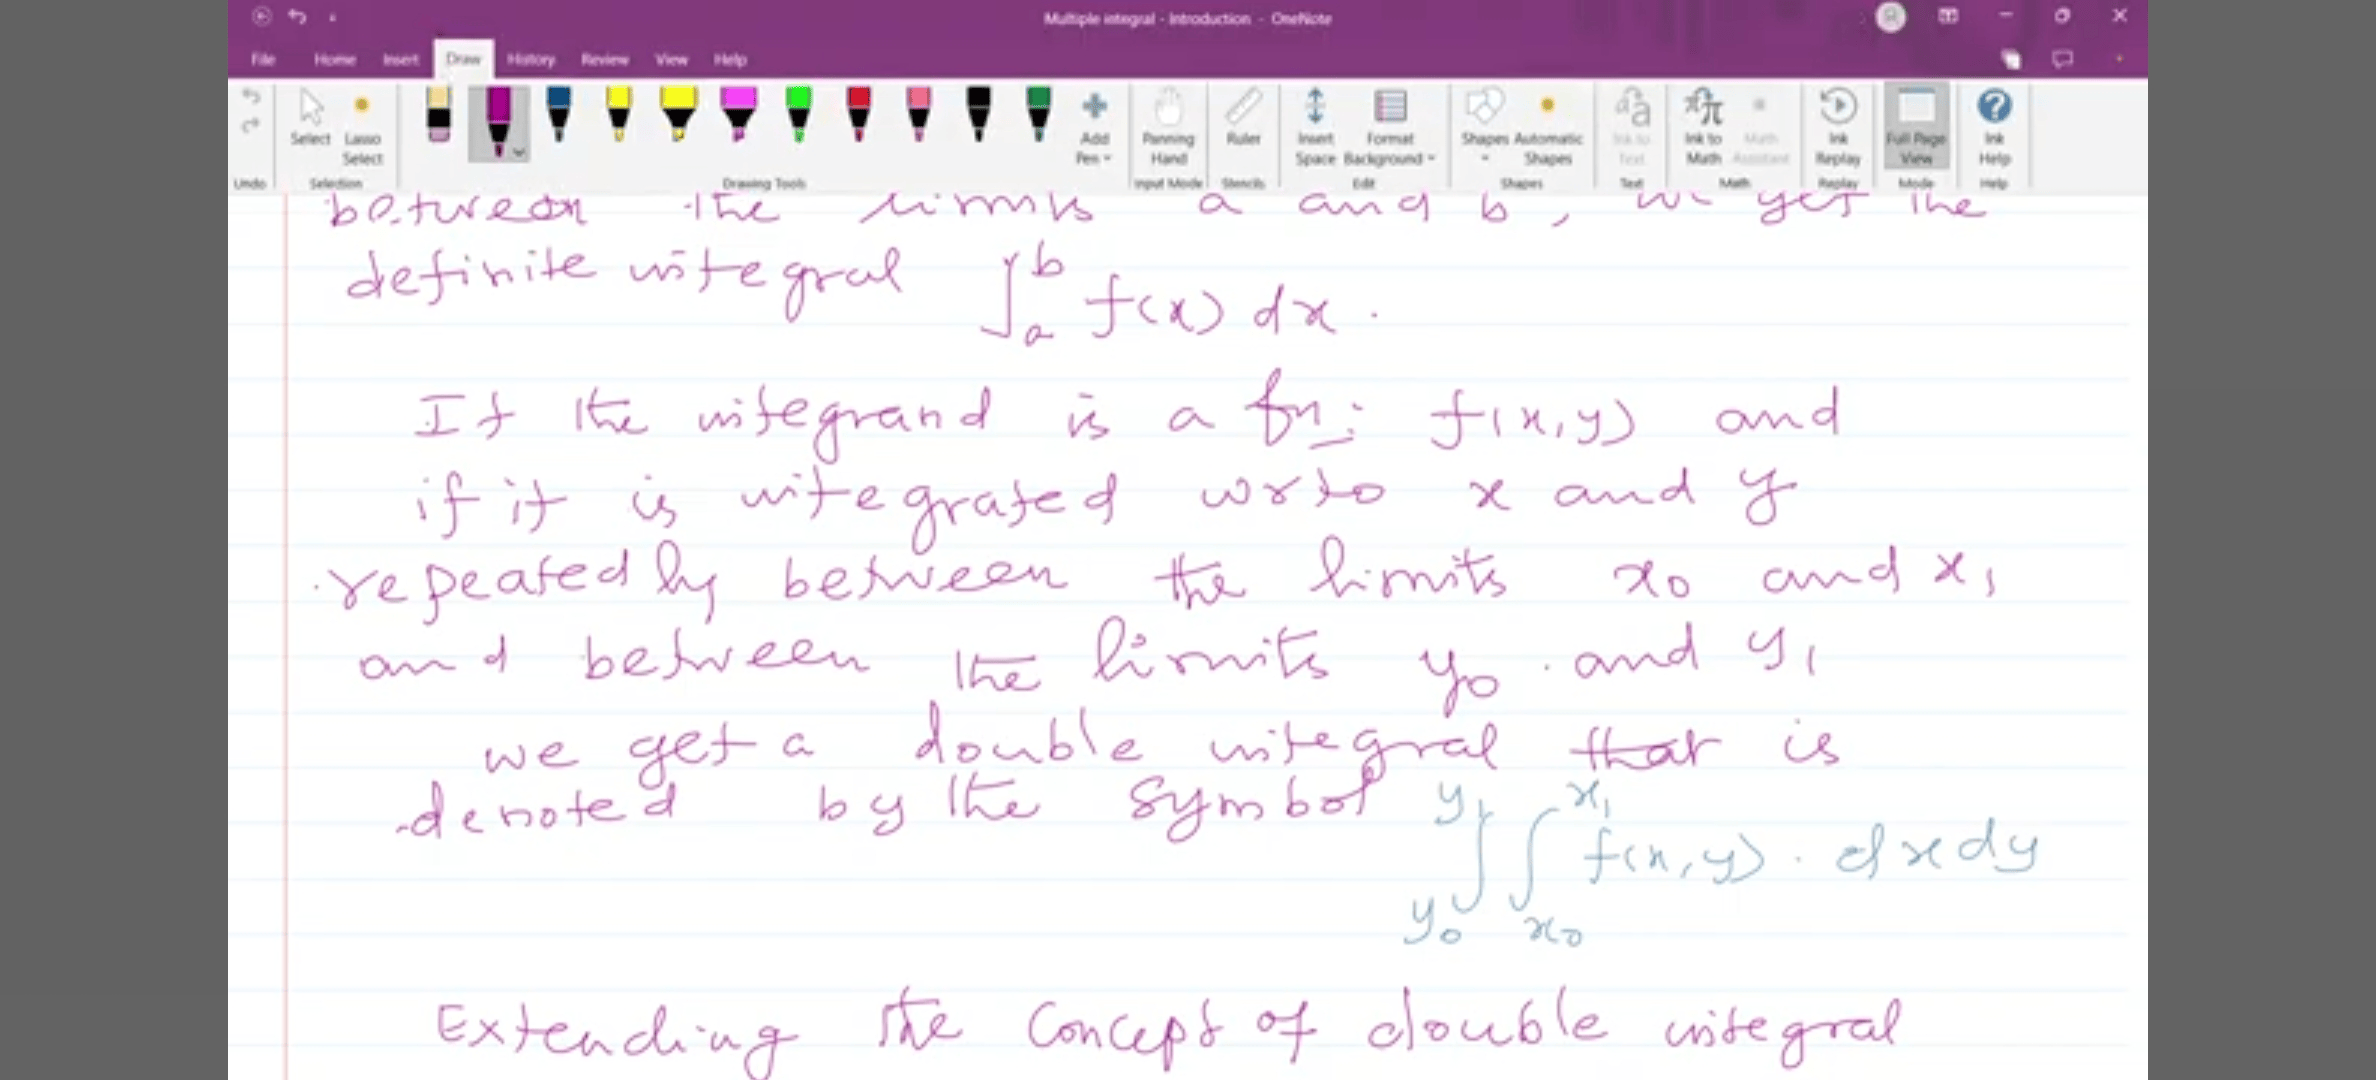 Multiple integral - Introduction - OneNote
File Home Insert Draw History Review View Help
Undo
Select
Lasso Select
Selection
Drawing Tools
Add Pen
Panning Hand
Input Mode
Ruler
Stencils
Insert Space
Format Background
Edit
Shapes
Automatic Shapes
Shapes
Ink to Text
Text
Ink to Math
Math Assistant
Math
Ink Replay
Replay
Full Page View
Mode
Ink Help
Help
between the limits a and b, we get the
definite integral ∫ₐᵇ f(x) dx.
If the integrand is a fn: f(x,y) and
if it is integrated wrto x and y
repeatedly between the limits x₀ and x₁
and between the limits y₀ and y₁
we get a double integral that is
denoted by the symbol
y₁ x₁
∫ ∫ f(x,y). dx dy
y₀ x₀
Extending the concept of double integral